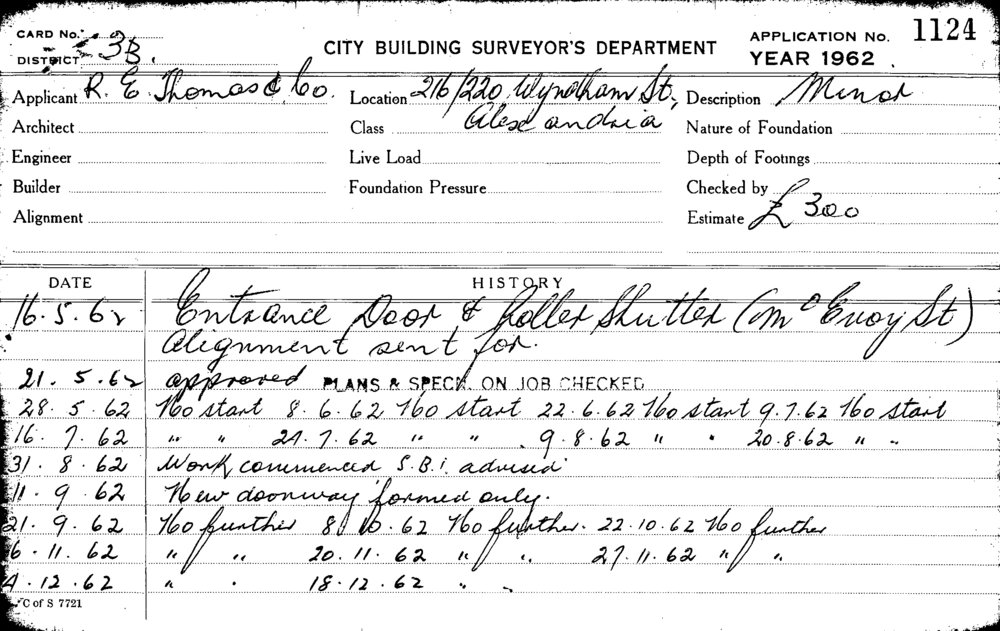 CARD No. 3B. CITY BUILDING SURVEYOR'S DEPARTMENT APPLICATION No. 1124
DISTRICT YEAR 1962
Applicant R. E. Thomas & Co. Location 216/220 Wyndham St, Description Minor
Architect Class Alexandria Nature of Foundation
Engineer Live Load Depth of Footings
Builder Foundation Pressure Checked by
Alignment Estimate £300
DATE HISTORY
16.5.62 Entrance Door & Roller Shutter (McEvoy St)
Alignment sent for.
21.5.62 approved PLANS & SPECN. ON JOB CHECKED
28.5.62 No start 8.6.62 No start 22.6.62 No start 9.7.62 No start
16.7.62 " " 27.7.62 " " 9.8.62 " " 20.8.62 " "
31.8.62 Work commenced S.B.i. advised
11.9.62 New doorway formed only.
21.9.62 No further 8.10.62 No further. 22.10.62 No further
6.11.62 " " 20.11.62 " " 27.11.62 " "
4.12.62 " " 18.12.62 " "
C of S 7721